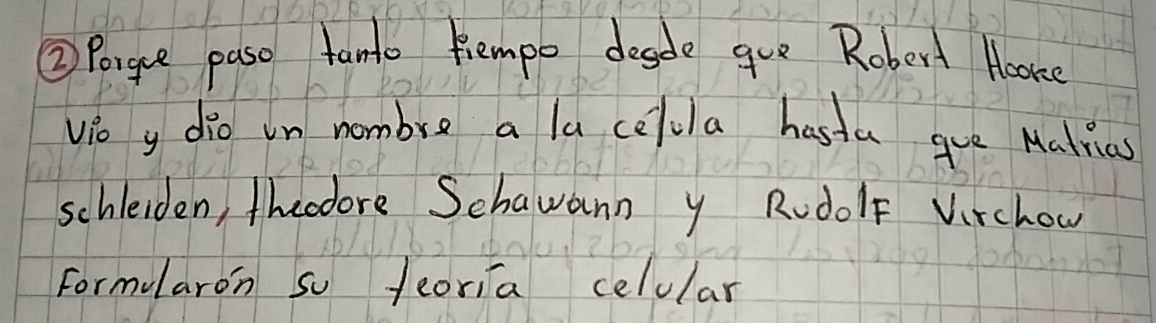 ② Porque paso tanto tiempo desde que Robert Hooke
vio y dio un nombre a la célula hasta que Matrias
schleiden, theodore Schawann y RudolF Virchow
Formularón su teoría celular